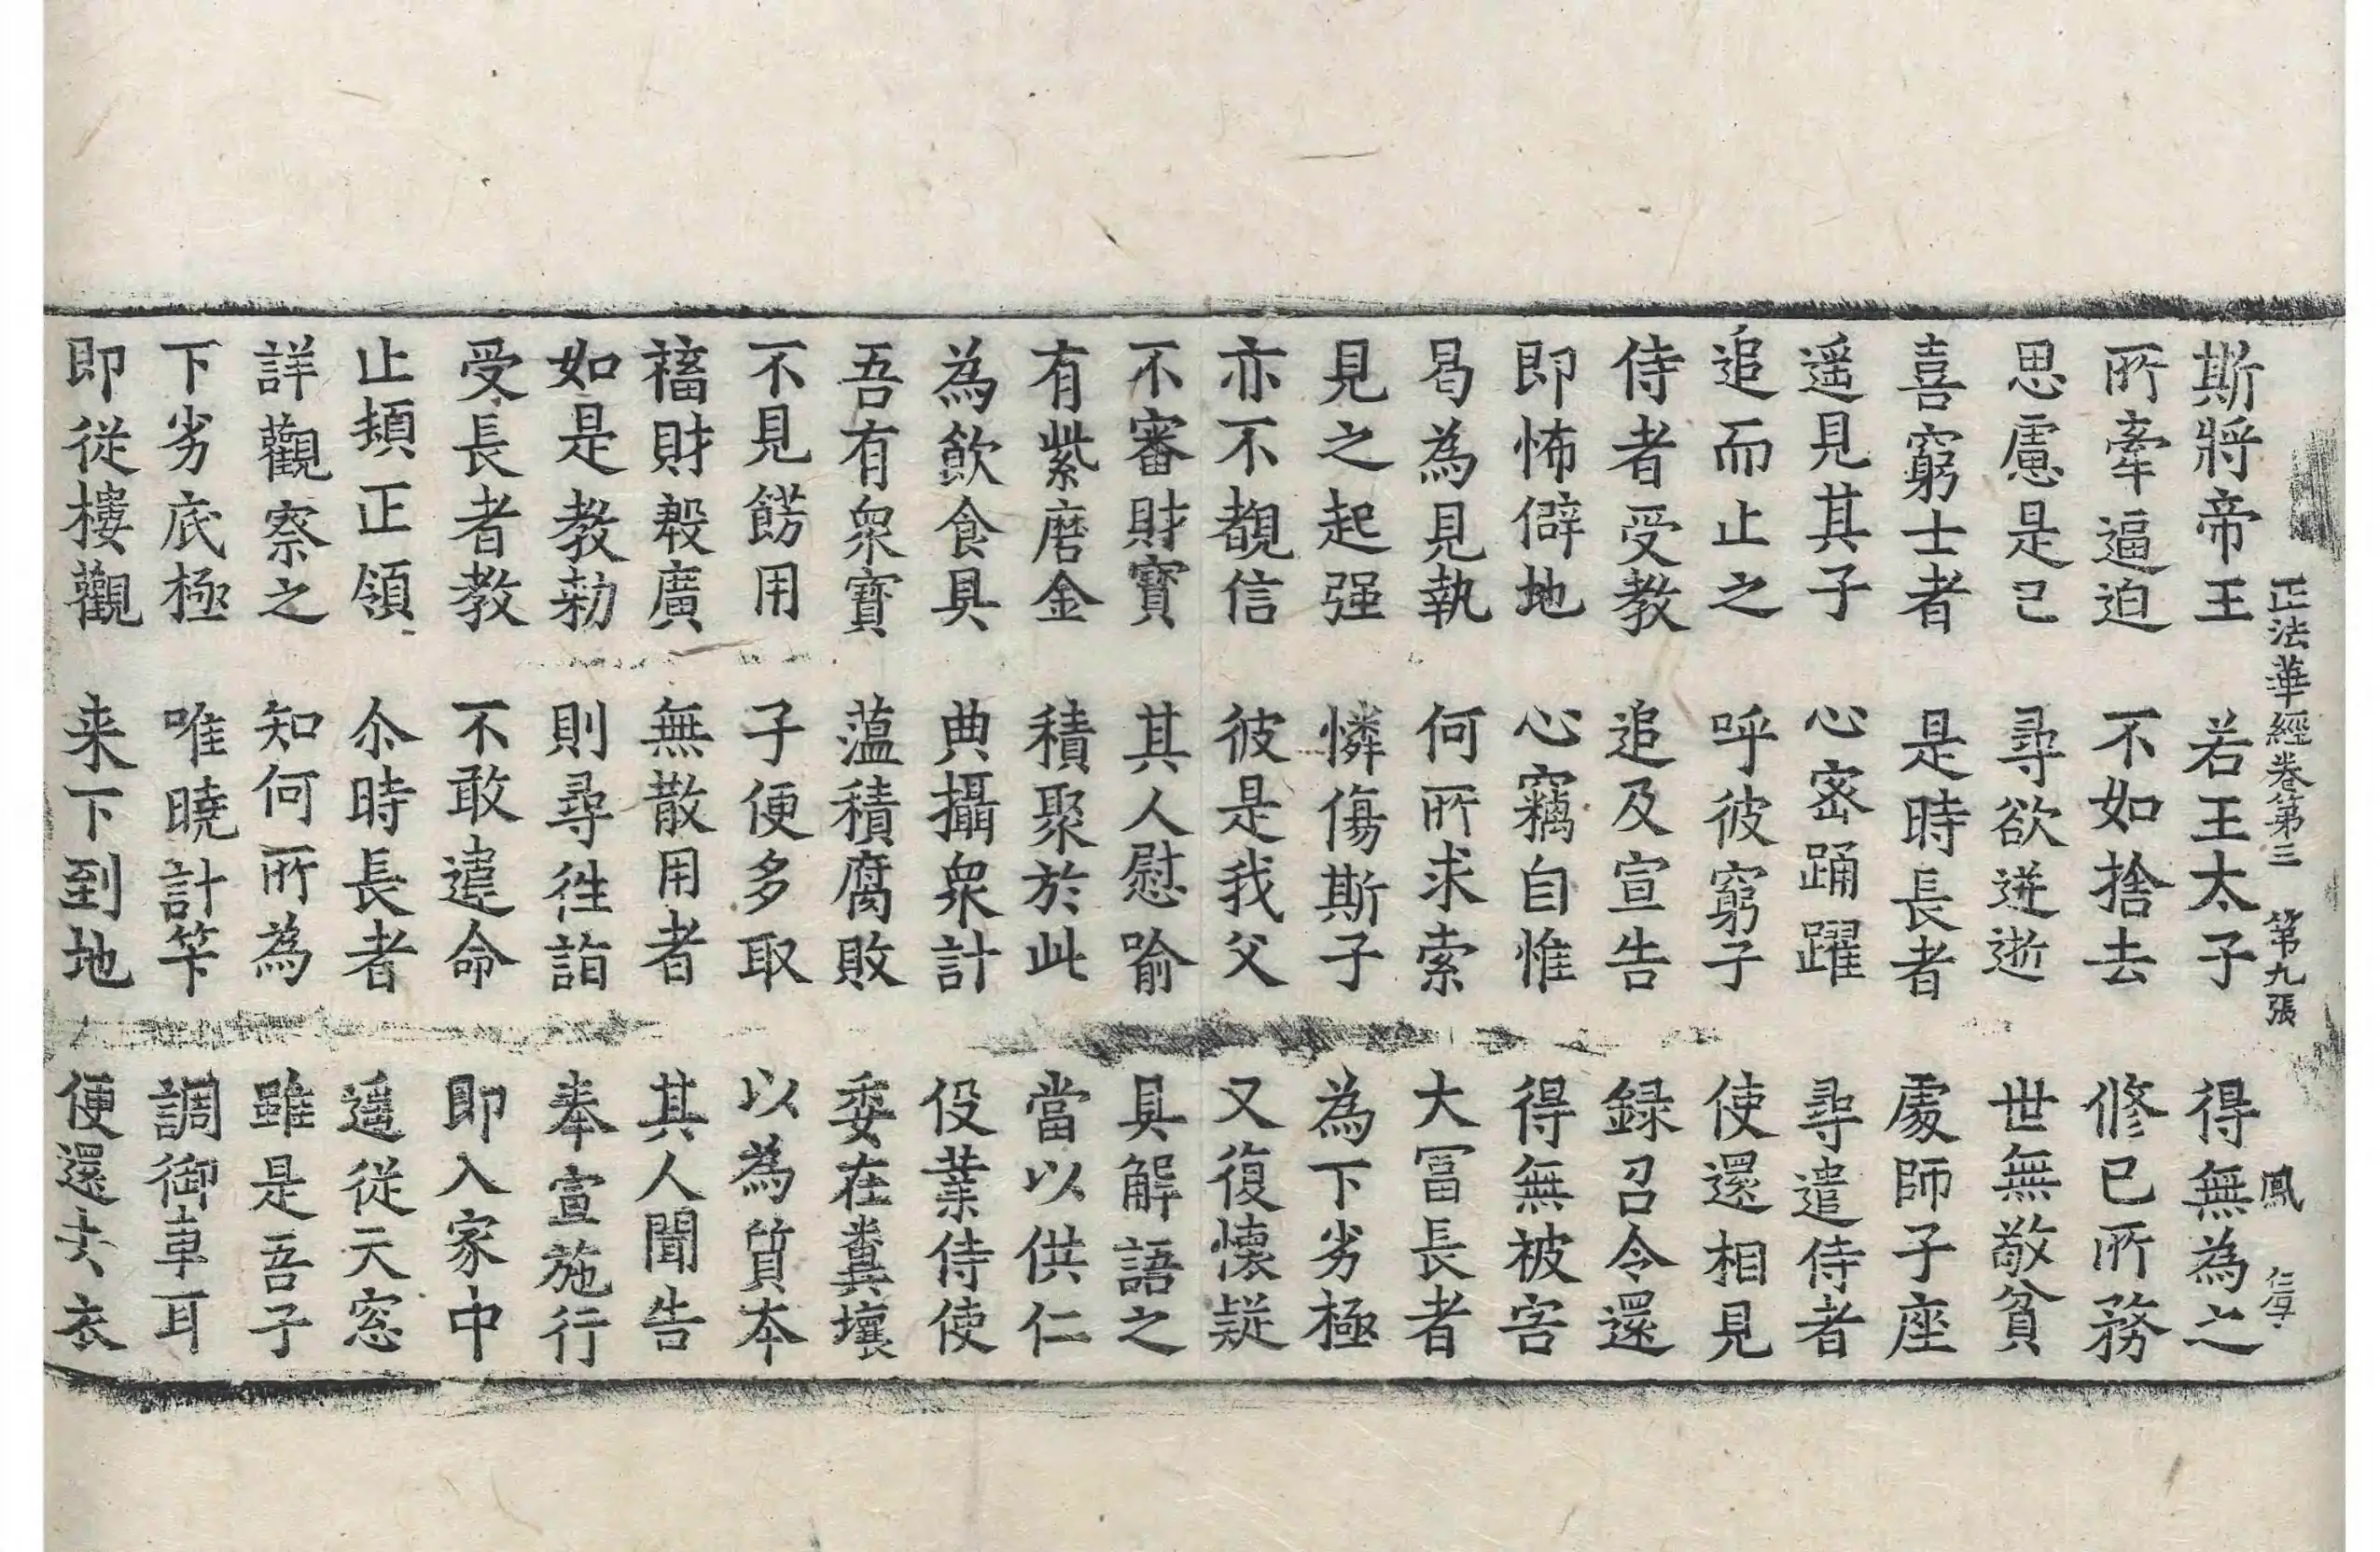 正法華經卷第三 第九張 鳳 仁守
斯將帝王 若王太子 得無為之
所牽逼迫 不如捨去 修已所務
思慮是已 尋欲迸逝 世無敬貧
喜窮士者 是時長者 處師子座
遥見其子 心密踊躍 尋遣侍者
追而止之 呼彼窮子 使還相見
侍者受教 追及宣告 録召令還
即怖僻地 心竊自惟 得無被害
曷為見執 何所求索 大冨長者
見之起强 憐傷斯子 為下劣極
亦不覩信 彼是我父 又復懷疑
不審財寶 其人慰喻 具解語之
有紫磨金 積聚於此 當以供仁
為飲食具 典攝衆計 役業侍使
吾有衆寶 薀積腐敗 委在糞壤
不見餝用 子便多取 以為質本
蓄財殺廣 無散用者 其人聞告
如是教勑 則尋徃詣 奉宣施行
受長者教 不敢違命 即入家中
止頓正領 尒時長者 遥從天窓
詳觀察之 知何所為 雖是吾子
下劣底極 唯曉計筭 調御車耳
即從樓觀 来下到地 便還去衣